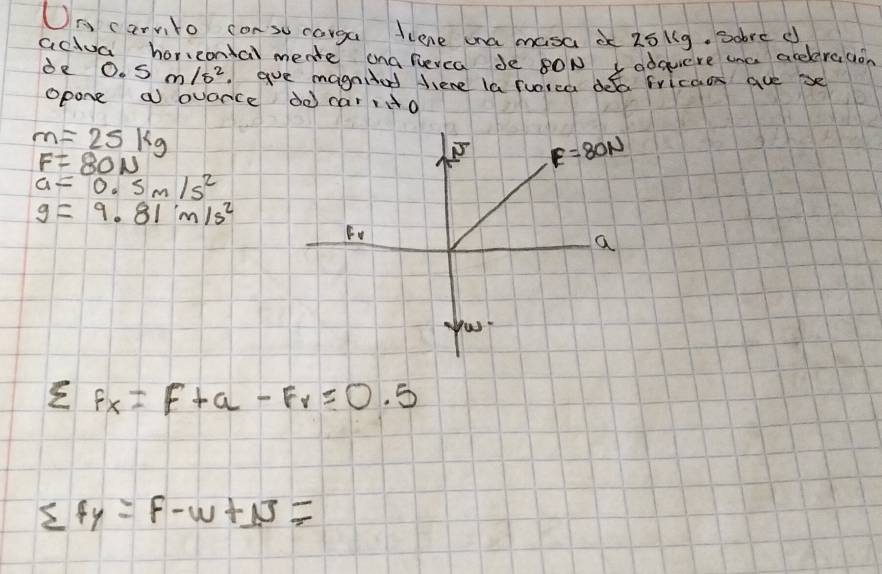 Un carrito con su carga tiene una masa de 25 Kg. Sobre el
actua horizontal mente una fuerca de 80N y adquiere una aceleración
de 0.5 m/s². que magnitud tiene la fuerca dela fricaon que se
opone al avance del carrito
m= 25 Kg
F= 80N
a= 0.5m/s²
g= 9.81 m/s²
N
F=80N
Fr
a
w
Σ Fx = F+a - Fr = 0.5
Σ fy = F-w+N =